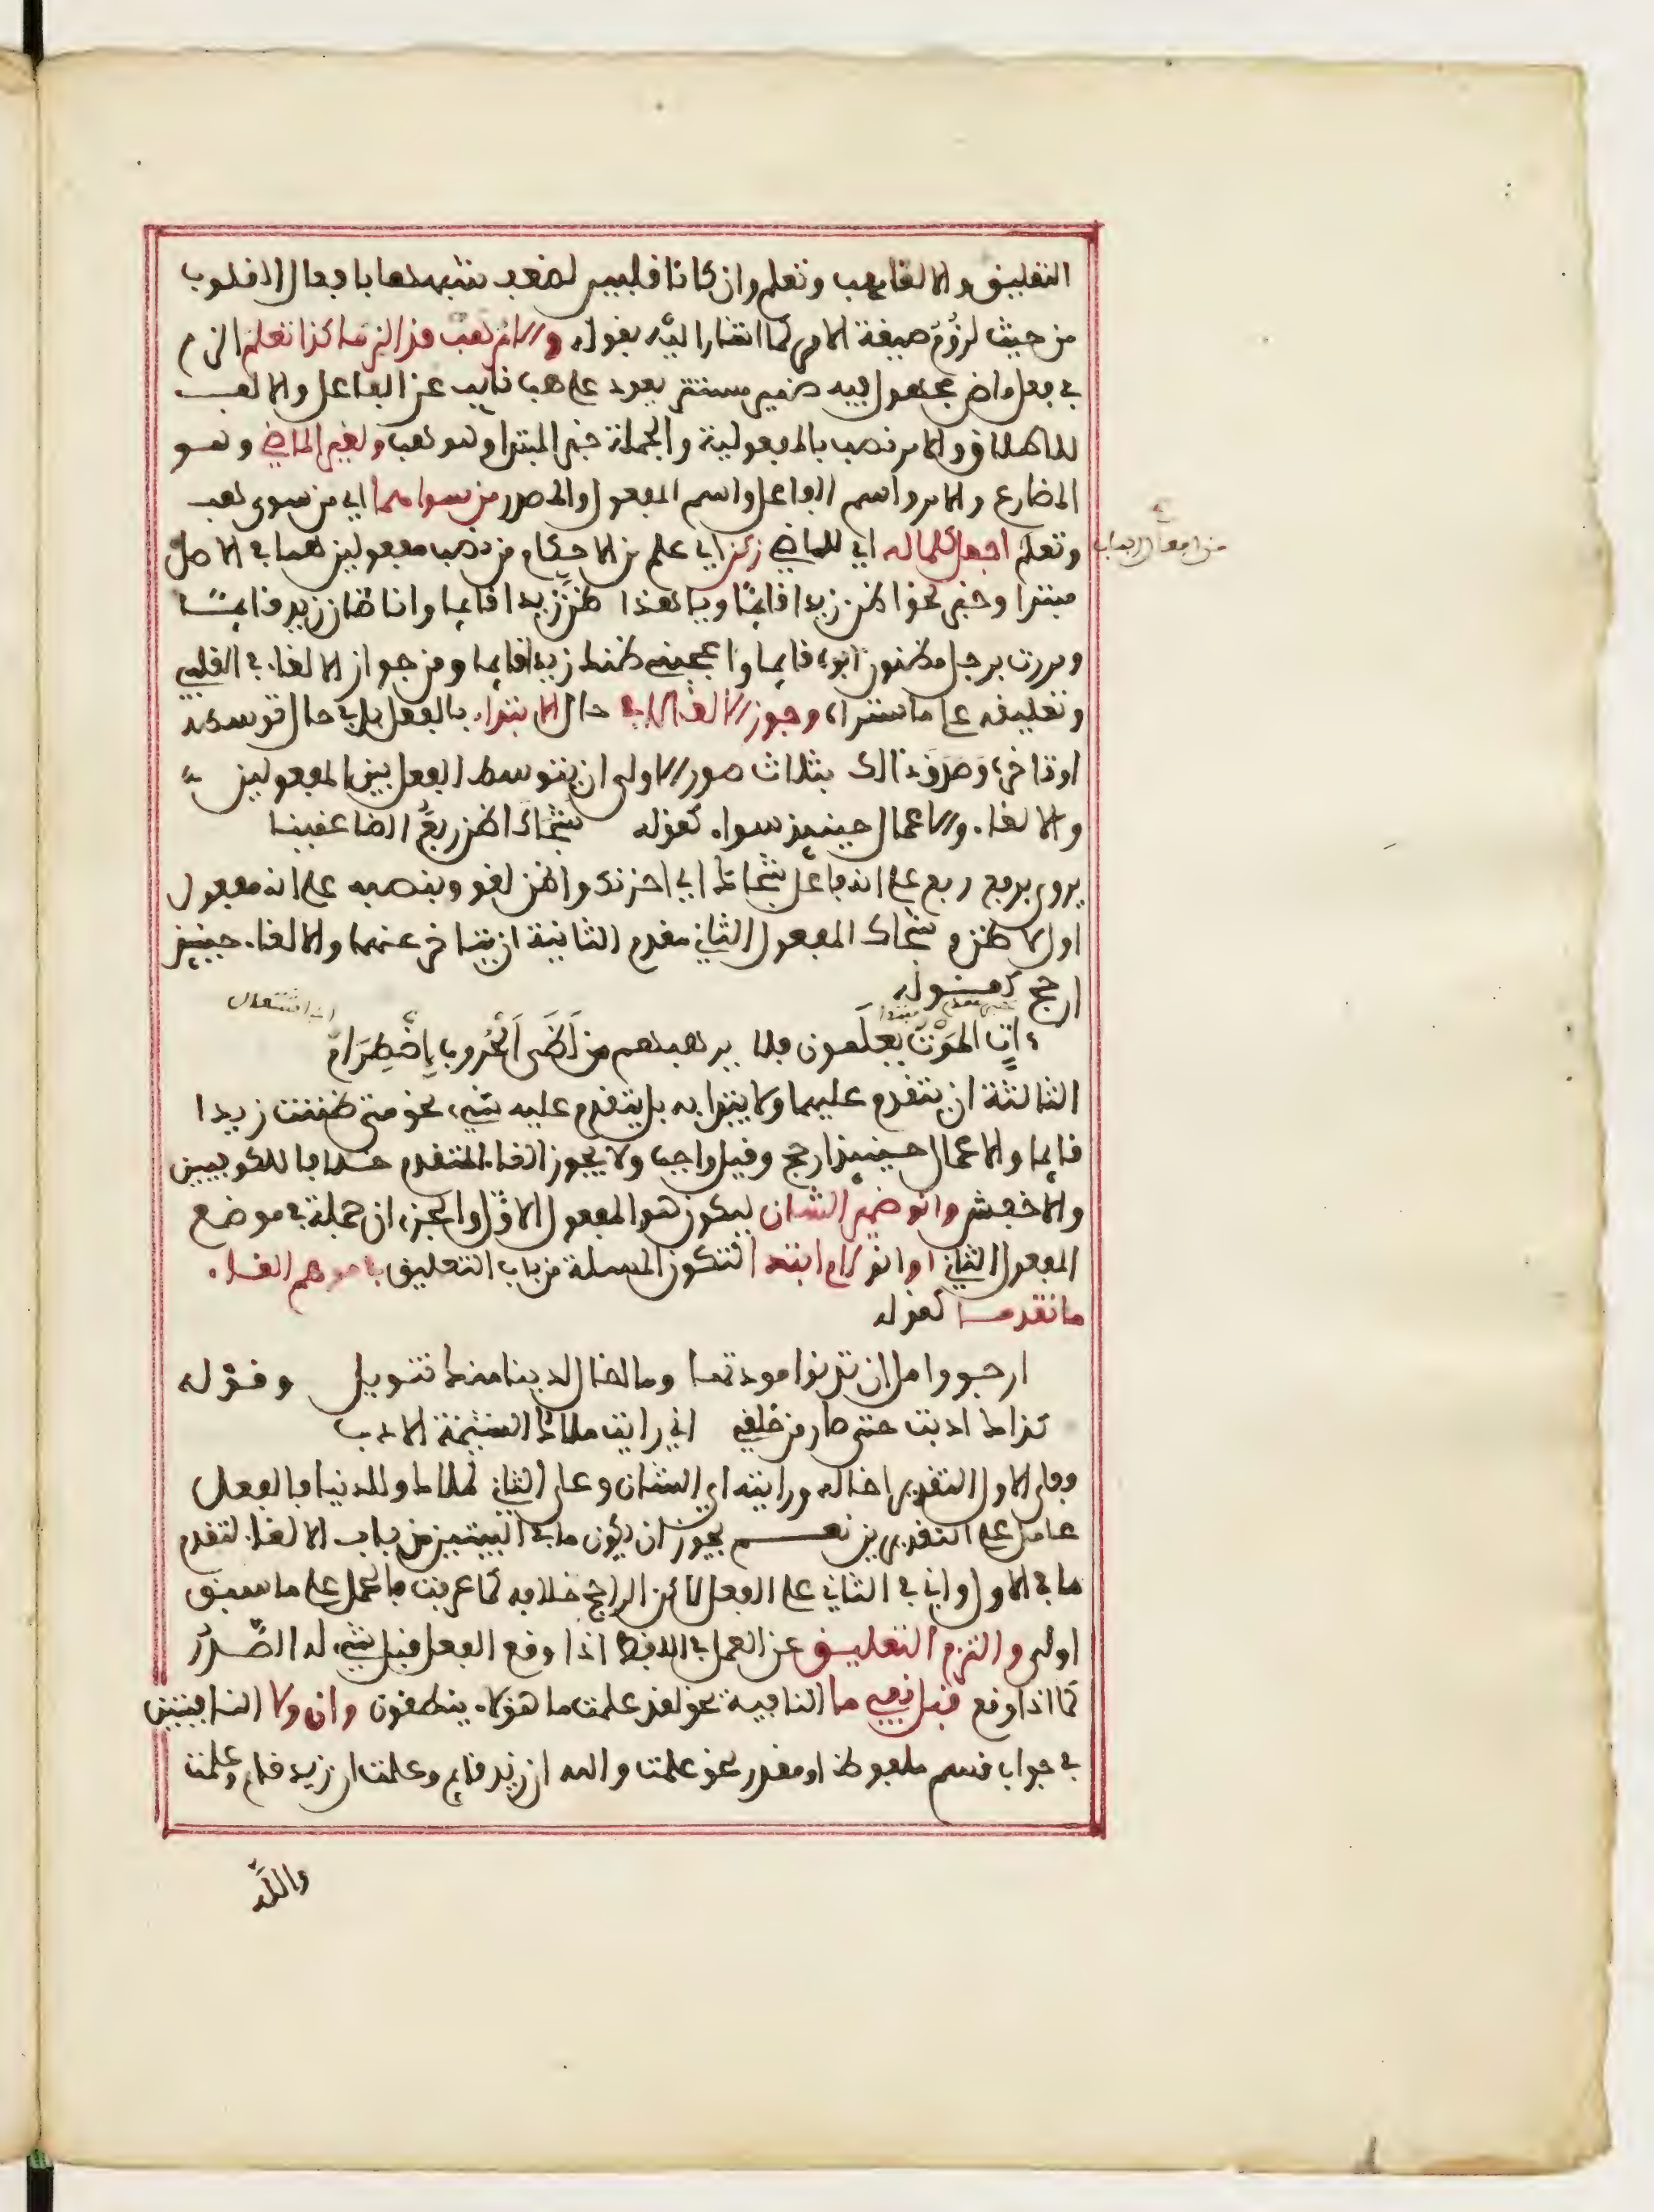 التعليق والالغا هب وتعلم وان كانا قلبيين لضعف شبههما بافعال القلوب
من حيث لزوم صيغة الامر كما اشار اليه بقوله والامر هب قد الزما كذا تعلم الزم
في فعل ماض مجهول فيه ضمير مستتر يعود على هب نايب عن الفاعل والالف
للاطلاق والامر نصب بالمفعولية والجملة خبر المبتدا وهو هب ولغير الماضي وهو
المضارع والامر واسم الفاعل واسم المفعول والمصدر من سواهما اي من سوى هب
من افعال الباب
وتعلم اجعل كلما له اي للماضي زكن اي علم من الاحكام من نصب مفعولين هما في الاصل
مبتدا وخبر نحو اظن زيدا قايما ويا هذا ظن زيدا قايما وانا ظان زيد قايما
ومررت برجل مظنون ابوه قايما واعجبني ظنك زيدا قايما ومن جواز الالغاء في القلبي
وتعليقه على ما ستراه وجوز الالغاء لا في حال الابتداء بالفعل بل في حال توسطه
او تاخره وصدق ذالك بثلاث صور الاولى ان يتوسط الفعل بين المفعولين
والالغاء والاعمال حينيذ سواء كقوله شجاك اظن ربع الظاعنينا
يروى برفع ربع على انه فاعل شجاك اي احزنك واظن لغو وبنصبه على انه مفعول
اول لاظن و شجاك المفعول الثاني مقدم الثانية ان يتاخر عنهما والالغاء حينيذ
ارجح كقوله
خبر مقدم مبتدا اي اشتعال
ءات الموت تعلمون فلا يرهبكم من لظى الحروب اضطرام
الثالثة ان يتقدم عليهما ولا يبتدا به بل يتقدم عليه شيء نحو متى ظننت زيدا
قايما والاعمال حينيذ ارجح وقيل واجب ولا يجوز الغاء المتقدم خلافا للكوفيين
والاخفش وانو ضمير الشان ليكون هو المفعول الاول والجزءان جملة في موضع
المفعول الثاني او انو لام ابتدا لتكون المسلة من باب التعليق في موهم الغاء
ما تقدما كقوله
ارجو وامل ان تدنوا مودتها وما اخال لدينا منك تنويل وقوله
كذاك ادبت حتى صار من خلقي اني رايت ملاك الشيمة الادب
فعلى الاول التقدير اخاله ورايته اي الشان وعلى الثاني لملاك وللدينا فالفعل
عامل على التقديرين نعم يجوز ان يكون ما في البيتين من باب الالغاء لتقدم
ما في الاول واني في الثاني على الفعل لاكن الراجح خلافه كما عرفت فالحمل على ما سبق
اولى والتزم التعليق عن العمل في اللفظ اذا وقع الفعل قبل شيء له الصدر
كما اذا وقع قبل نفي ما النافية نحو لقد علمت ما هؤلاء ينطقون وان ولا النافيتين
في جواب قسم ملفوظ او مقدر نحو علمت والله ان زيد قايم وعلمت ان زيد قايم وعلمت
والله